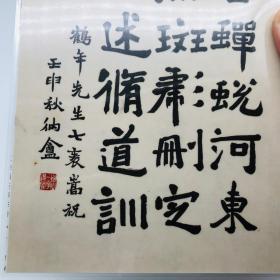 蟬蛻河東
斑彪刪定
述脩道訓
鶴年先生七袠嵩祝
壬申秋衲盦